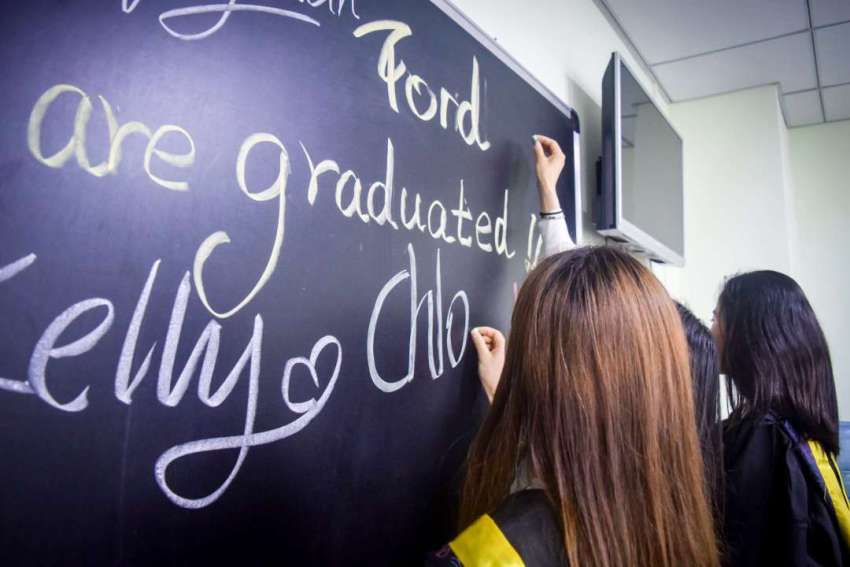 Ford
are graduated
Kelly
Chlo